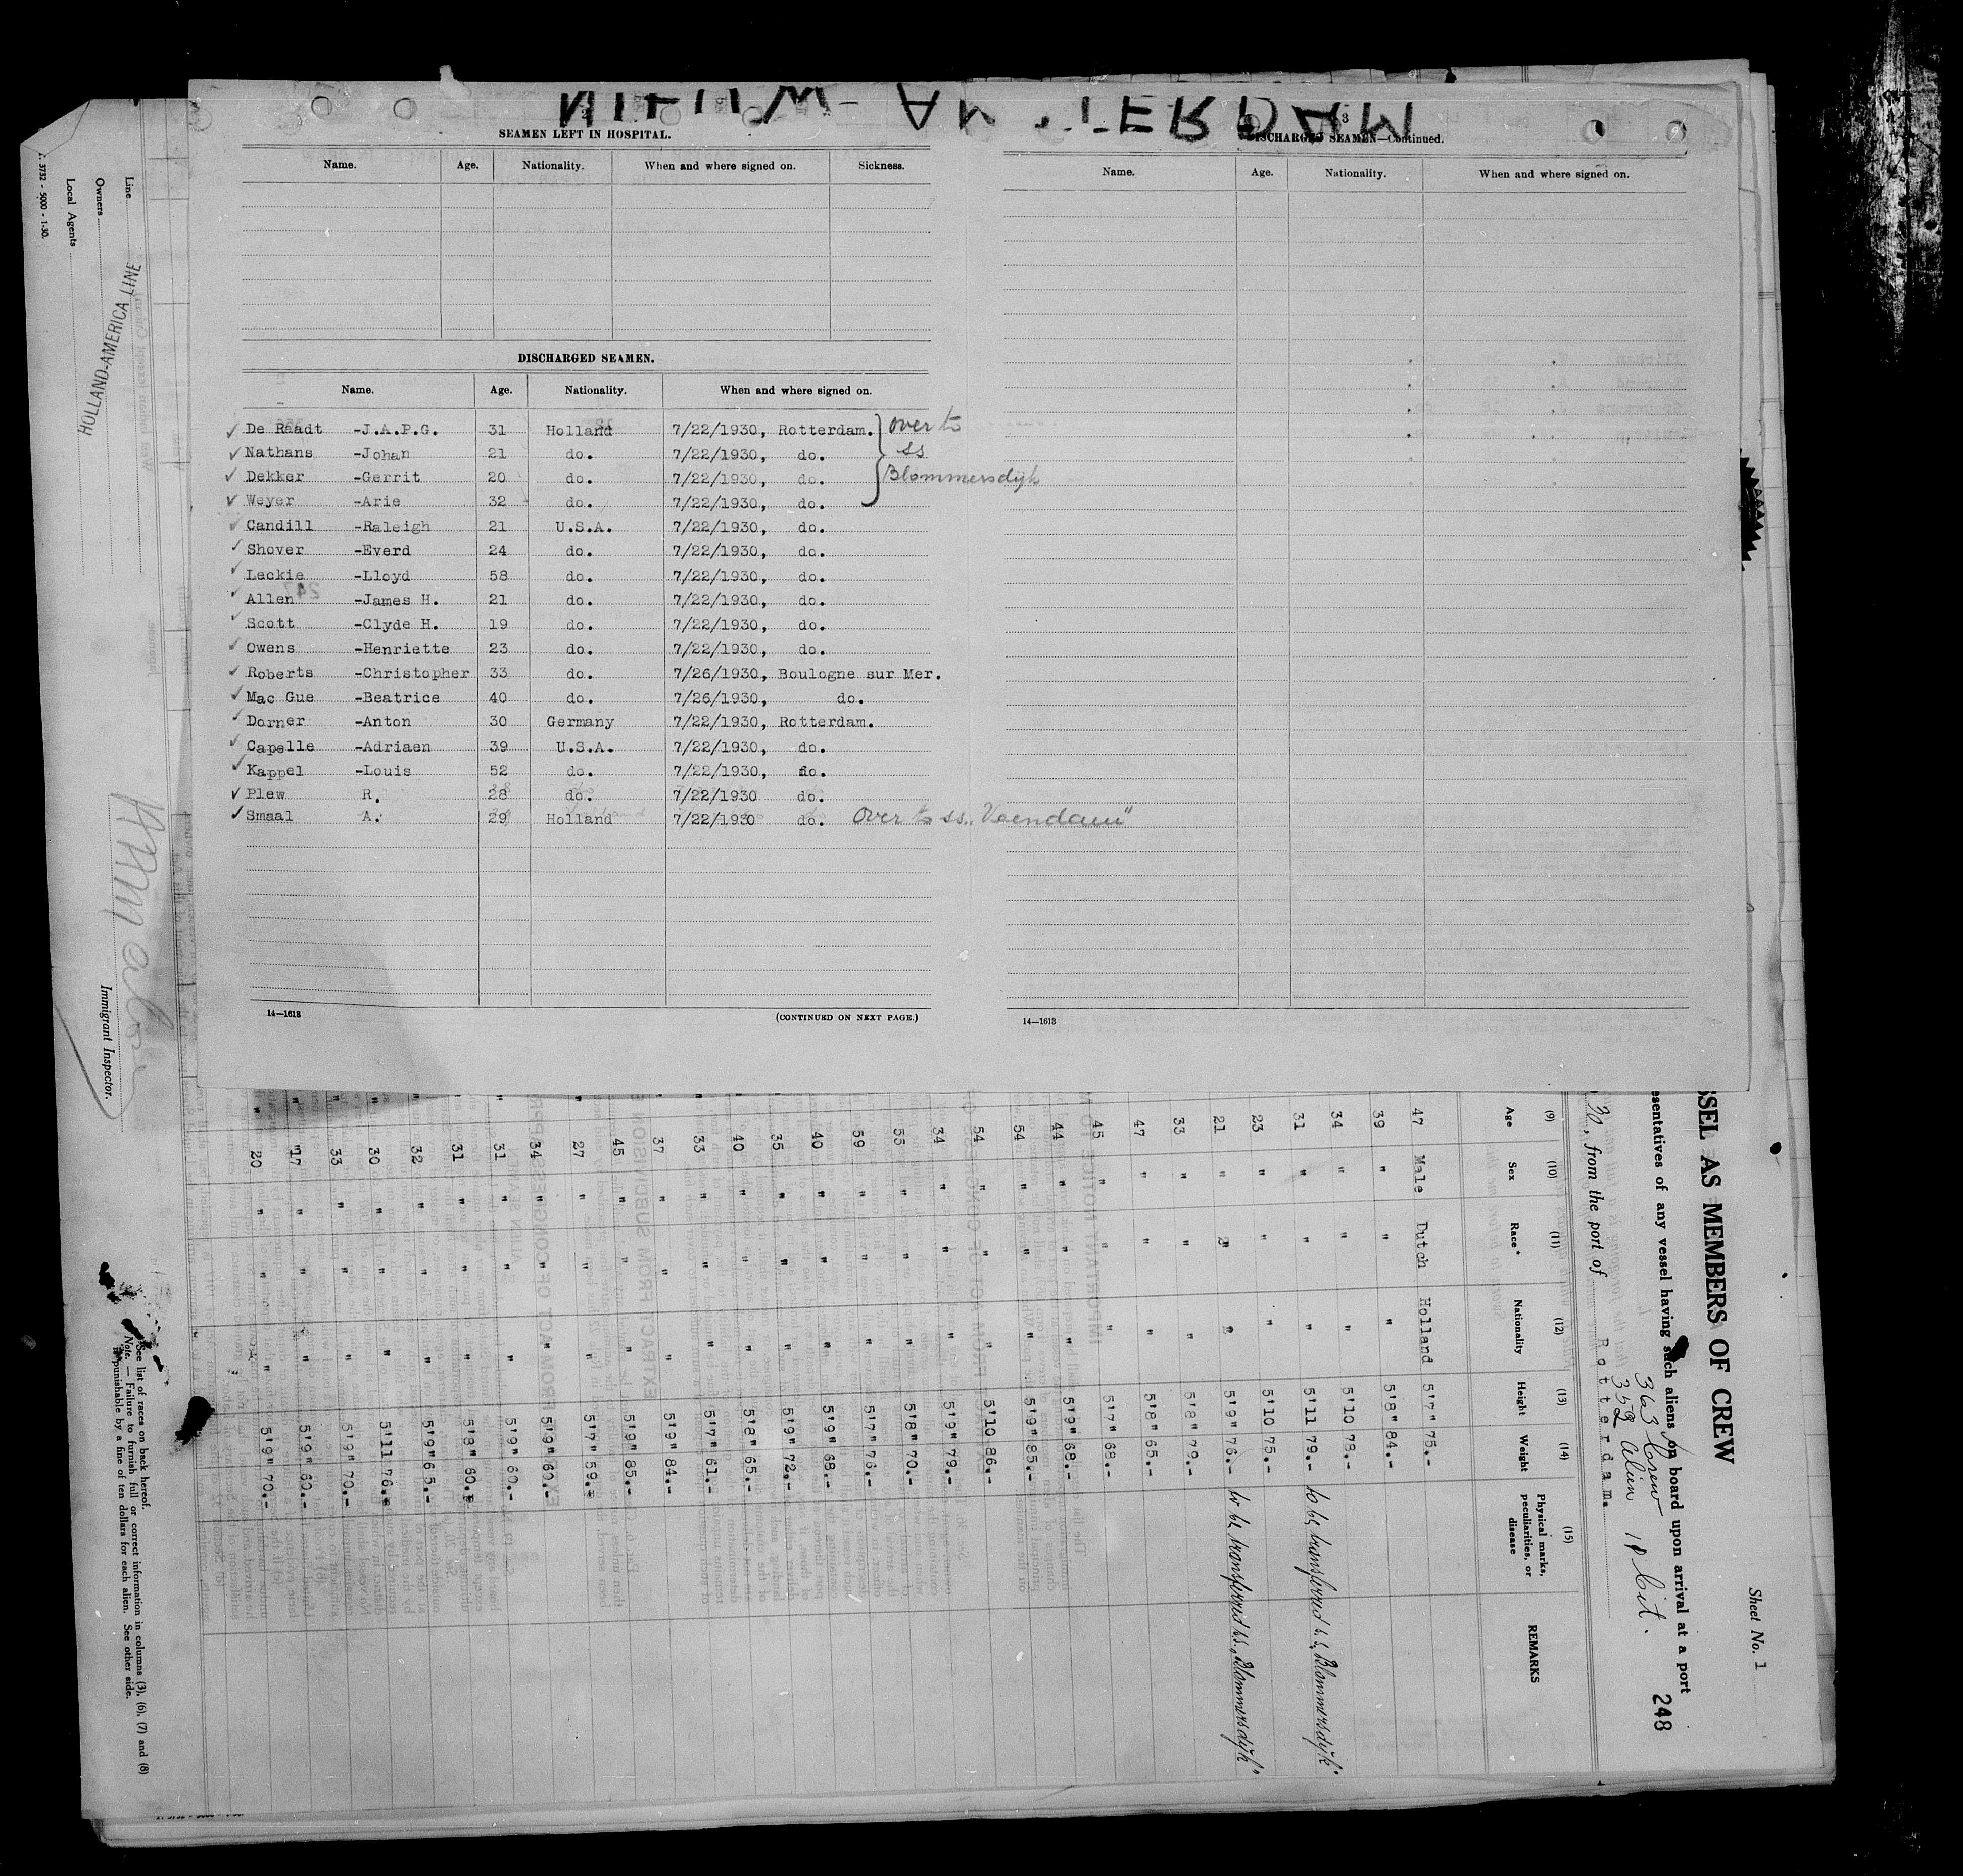 NIEUW-AMSTERDAM
SEAMEN LEFT IN HOSPITAL.
Name. Age. Nationality. When and where signed on. Sickness.
DISCHARGED SEAMEN.
Name. Age. Nationality. When and where signed on.
De Raadt -J.A.P.G. 31 Holland 7/22/1930, Rotterdam. over to
Nathans -Johan 21 do. 7/22/1930, do. ss
Dekker -Gerrit 20 do. 7/22/1930, do. Blommersdijk
Weyer -Arie 32 do. 7/22/1930, do.
Candill -Raleigh 21 U.S.A. 7/22/1930, do.
Shover -Everd 24 do. 7/22/1930, do.
Leckie -Lloyd 58 do. 7/22/1930, do.
Allen -James H. 21 do. 7/22/1930, do.
Scott -Clyde H. 19 do. 7/22/1930, do.
Owens -Henriette 23 do. 7/22/1930, do.
Roberts -Christopher 33 do. 7/26/1930, Boulogne sur Mer.
Mac Gue -Beatrice 40 do. 7/26/1930, do.
Dorner -Anton 30 Germany 7/22/1930, Rotterdam.
Capelle -Adriaen 39 U.S.A. 7/22/1930, do.
Kappel -Louis 52 do. 7/22/1930, do.
Plew R. 28 do. 7/22/1930 do.
Smaal A. 29 Holland 7/22/1930 do. over to ss. „Veendam"
14—1613 (CONTINUED ON NEXT PAGE.)
3
DISCHARGED SEAMEN—Continued.
Name. Age. Nationality. When and where signed on.
14—1613
Line
Owners
Local Agents
HOLLAND-AMERICA LINE
3732 - 5000 - 1-30.
Immigrant Inspector.
See list of races on back hereof.
Note. — Failure to furnish full or correct information in columns (3), (6), (7) and (8)
is punishable by a fine of ten dollars for each alien. See other side.
Sheet No. 1
SSEL AS MEMBERS OF CREW
248
esentatives of any vessel having such aliens on board upon arrival at a port
363 Crew
352 alien 11 Cit.
30, from the port of Rotterdam.
(9) (10) (11) (12) (13) (14) (15)
Age Sex Race* Nationality Height Weight Physical marks, peculiarities, or disease REMARKS
47 Male Dutch Holland 5'7" 75.-
39 " " " 5'8" 84.-
34 " " " 5'10 78.-
31 " " " 5'11 79.- to be transferred s.s. „Blommersdijk"
23 " " " 5'10 75.-
21 " " " 5'9" 76.- to be transferred ss. „Blommersdijk"
33 " " " 5'8" 79.-
47 " " " 5'8" 65.-
45 " " " 5'7" 68.-
44 " " " 5'9" 68.-
54 " " " 5'9" 85.-
54 " " " 5'10 86.-
34 " " " 5'9" 79.-
53 " " " 5'8" 70.-
59 " " " 5'7" 76.-
40 " " " 5'9" 68.-
35 " " " 5'9" 72.-
40 " " " 5'8" 65.-
33 " " " 5'7" 61.-
37 " " " 5'9" 84.-
45 " " " 5'9" 85.-
27 " " " 5'7" 59.-
34 " " " 5'9" 60.-
31 " " " 5'9" 60.-
31 " " " 5'8" 60.-
32 " " " 5'9" 65.-
30 " " " 5'11 76.-
33 " " " 5'9" 70.-
17 " " " 5'9" 60.-
20 " " " 5'9" 70.-